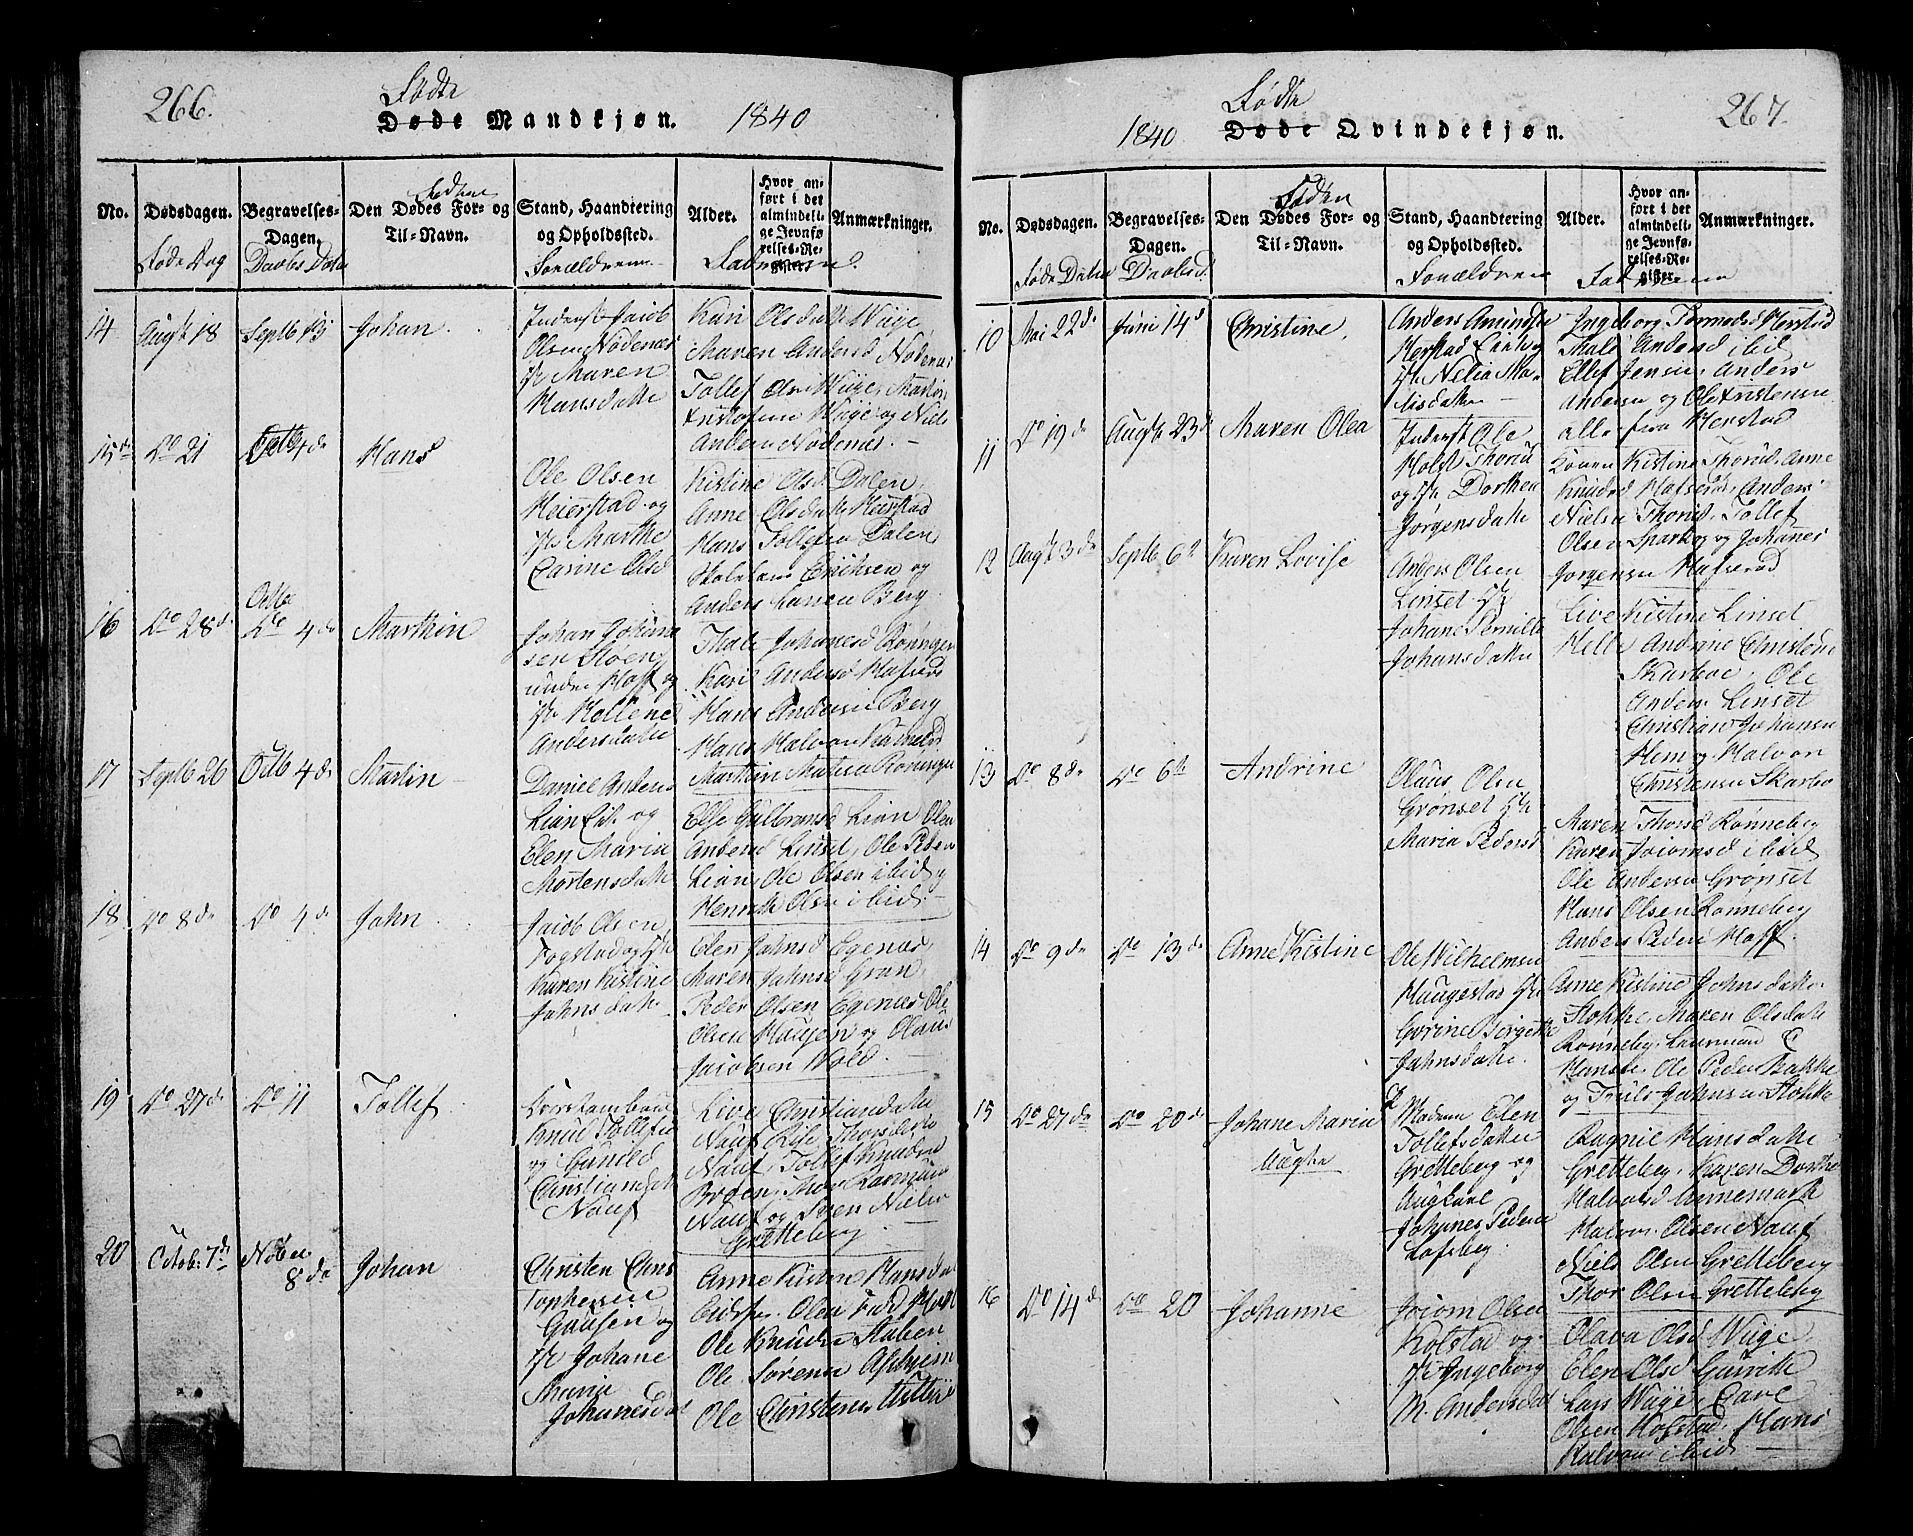 266.
Fødte
Døde Mandkjøn.
1840
No.
Dødsdagen.
Begravelses-
Dagen.
Fødtes
Den Dødes For- og
Til-Navn.
Stand, Haandtering
og Opholdsted.
Alder.
Hvor an-
ført i det
almindeli-
ge Jevnfø-
relses-Re-
gister.
Anmærkninger.
Føde Dag
Daabs Dato
Forældrene
Fadderne
14
Augt 18
Septb 13
Johan
Inderst Jacob
Olsen Nødenæs
Maren
Hansdatte
Kari Olsdatt Wiige
Maren Andersd Nødenæs
Tollef Olsen Wiige, Martin
Kristofersen Wiige og Niels
Andersen Nødenæs.
15de
Do 21
Octb 4de
Hans
Ole Olsen
Heierstad og
Marthe
Carine Olsd
Kistine Olsd Dalen,
Anne Olsdatt Heierstad
Hans Tollefsen Dalen
Eriksen og
Anders Larsen Berg.
16
Do 28de
Octbr
Do 4de
Marthin
Johan Johan
sen Støen
under Hoff og
Hellene
Andersdatte
Thale Johanesd Rønningen
Kari Andersd Hafsrød
Hans Andersen Berg
Hans Halvorsen
Marthin Rønningen
17
Septb 26
Octb 4de
Martin
Daniel Anders
Lian Eie og
Elen Maria
Mortensdatte
Else Gulbransd Lian, Olea
Andersd Linset, Ole Peders
Lian, Ole Olsen ibid og
Henrik Olsen ibid.
18
Do 8de
Do 4de
John
Jacob Olsen
Fogstad og
Karen Kistine
Johnsdatt
Elen Johnsd Egenæs,
Maren Johnsd Gran,
Peder Olsen Egenæs, Ole
Olsen Haugen og Olaus
Jacobsen Wold.
19
Do 27de
Do 11
Tollef
Knud Tollefse
og Gunild
Christiansdat
Nauf
Live Christiansdatte
Nauf, Lise Thorsdatte
Nauf, Tollef Knudsen
Broen, Thor Rasmussen
Nauf og Sven Nielsen
Gretteberg
20
Octob: 7de
Nobr
8de
Johan
Christen Chris
tophersen
Gaasen og
Johane
Maria
Johanesdat
Anne Kistine Hansdat
Olea
Ole Knudsen Staben
Ole Sørensen Asbjem
Ole Christensen
1840
Fødte
Døde Qvindekjøn.
267.
No.
Dødsdagen.
Begravelses-
Dagen.
Fødtes
Den Dødes For- og
Til-Navn.
Stand, Haandtering
og Opholdsted.
Alder.
Hvor an-
ført i det
almindeli-
ge Jevnfø-
relses-Re-
gister.
Anmærkninger.
Føde Dato
Daabsd.
Forældrene
Fadderne
10
Mai 22de
Juni 14de
Christine.
Anders Amunds
Herstad Eie og
Nelia Ma-
tisdatte
Ingeborg Tormodsd Herstad
Thale Andersd ibid
Ellef Jensen, Anders
Andersen og Ole Kristensen
alle fra Herstad
11
Do 19de
Augt 23de
Maren Olea
Inderst Ole
Holst Thorud
og Dorthea
Jørgensdatte
Karen Kistine Thorud, Anne
Knudsd Hafsrød, Anders
Nielsen Thorud, Tollef
Olsen Spark og Johanes
Jørgensen Hafsrød
12
Augt 3de
Septb 6te
Karen Lovise
Anders Olsen
Linset
Johane Pernille
Johansdatte
Live Kistine Linset
Helle Andrine Christens
Skarboe, Ole
Anders Linset
Christian Johansen
Hem og Halvor
Christensen Skarbo
13
Do 8de
Do 6te
Andrine
Olaus Olsen
Grønset
Maria Pedersd
Maren Thorsd Rønneberg
Karen Joiomsd ibid
Ole Andersen Grønset
Hans Olsen Rønneberg
Anders Peders Hoff.
14
Do 9de
Do 13de
Anne Kistine
Ole Wilhelmsen
Haugestad
Gorine Birgette
Johnsdatte.
Anne Kistine Johnsdatte
Stokke, Maren Olsdatt
Rønneberg, Laurman C
Hanste, Ole Peders Bakke
og Truls Johnsen Stokke
15
Do 27de
Do 20de
Johane Maria
Augta
Madam Elen
Tollefsdatte
Gretteberg og
Johanes Peders
Lofsberg.
Ragnil Hansdatte
Gretteberg, Karen Dorthe
Halvorsd Annemark
Halvor Olsen Nauf
Niels Olsen Gretteberg
Thor Olsen Gretteberg
16
Do 14de
Do 20
Johanne
Joiom Olsen
Kolstad og
Ingeborg
M. Andersdat
Olava Olsd Wiige,
Elen Olsd
Lars Wiige,
Olsen Kolstad, Hans
Halvorsen ibid